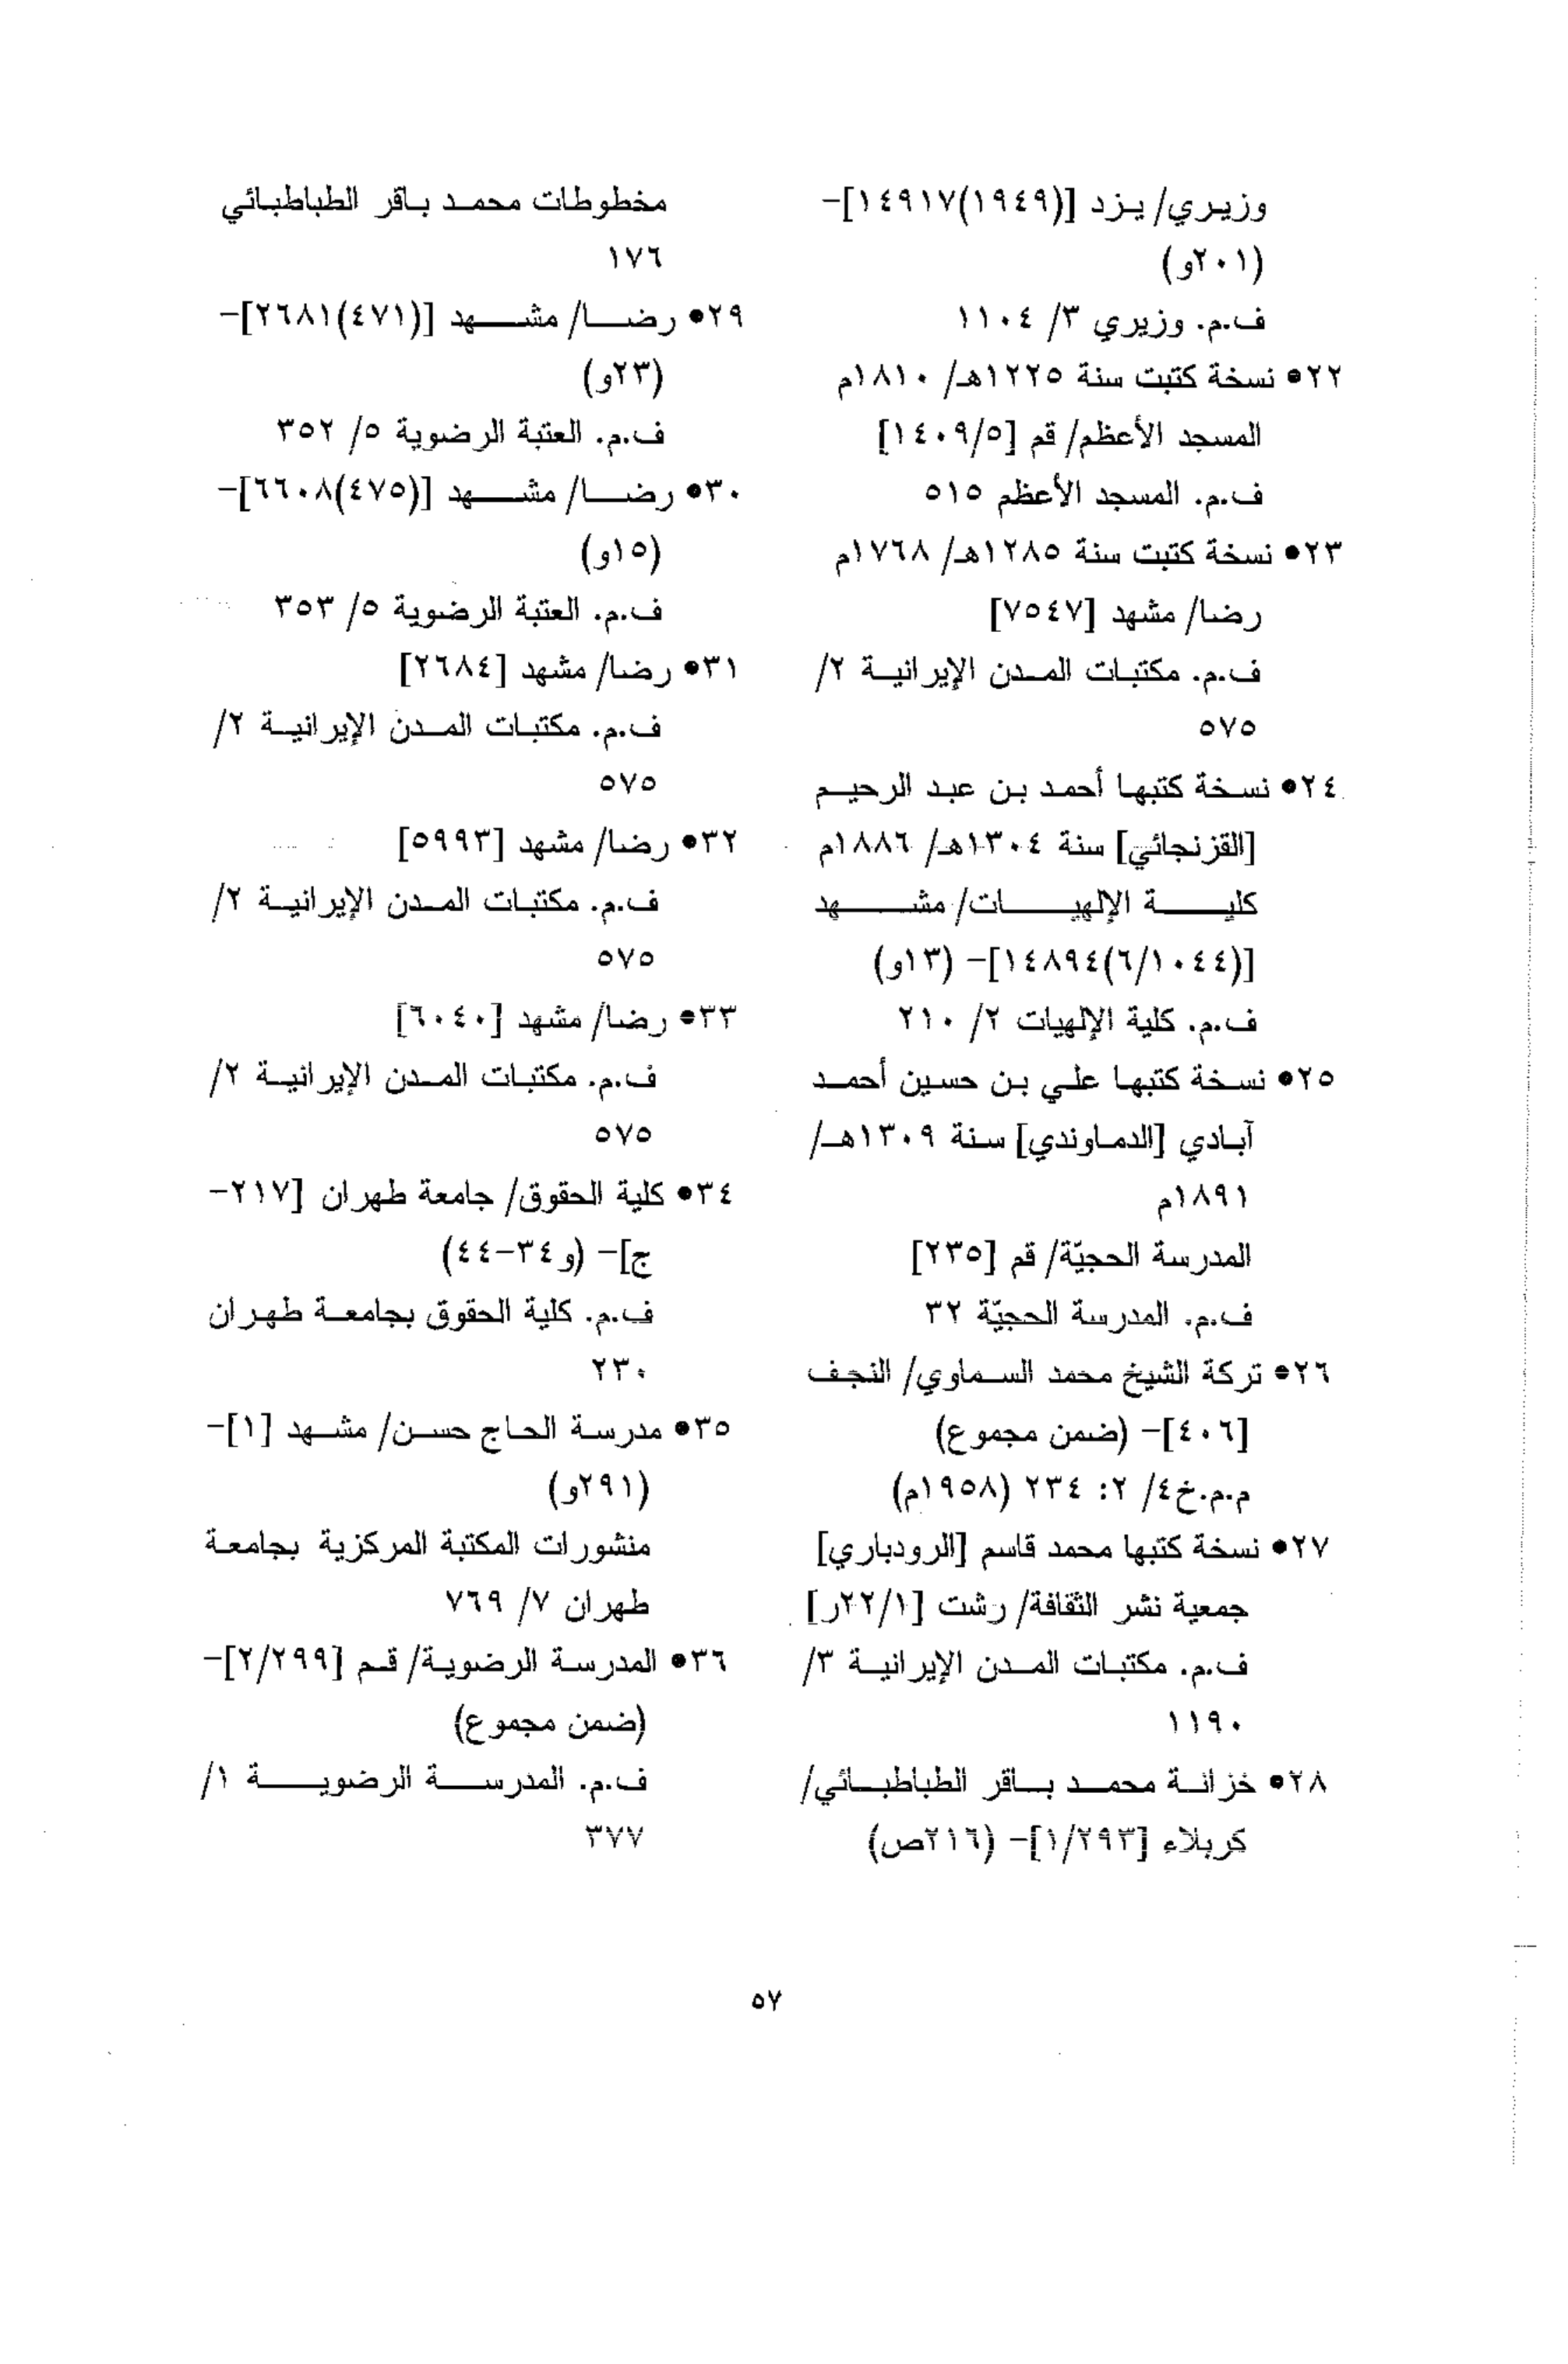 وزيري/ يزد [(١٩٤٩)١٤٩١٧]-
(٢٠١و)
ف.م. وزيري ٣/ ١١٠٤
٢٢● نسخة كتبت سنة ١٢٢٥هـ/ ١٨١٠م
المسجد الأعظم/ قم [١٤٠٩/٥]
ف.م. المسجد الأعظم ٥١٥
٢٣● نسخة كتبت سنة ١٢٨٥هـ/ ١٧٦٨م
رضا/ مشهد [٧٥٤٧]
ف.م. مكتبات المدن الإيرانية ٢/
٥٧٥
٢٤● نسخة كتبها أحمد بن عبد الرحيم
[القزنجائي] سنة ١٣٠٤هـ/ ١٨٨٦م
كلية الإلهيات/ مشهد
[(٦/١٠٤٤)١٤٨٩٤]- (١٣و)
ف.م. كلية الإلهيات ٢/ ٢١٠
٢٥● نسخة كتبها علي بن حسين أحمد
آبادي [الدماوندي] سنة ١٣٠٩هـ/
١٨٩١م
المدرسة الحجيّة/ قم [٢٣٥]
ف.م. المدرسة الحجيّة ٣٢
٢٦● تركة الشيخ محمد السماوي/ النجف
[٤٠٦]- (ضمن مجموع)
م.م.خ٤/ ٢: ٢٣٤ (١٩٥٨م)
٢٧● نسخة كتبها محمد قاسم [الرودباري]
جمعية نشر الثقافة/ رشت [٢٢/١ر]
ف.م. مكتبات المدن الإيرانية ٣/
١١٩٠
٢٨● خزانة محمد باقر الطباطبائي/
كربلاء [١/٢٩٣]- (٢١٦ص)
مخطوطات محمد باقر الطباطبائي
١٧٦
٢٩● رضا/ مشهد [(٤٧١)٢٦٨١]-
(٢٣و)
ف.م. العتبة الرضوية ٥/ ٣٥٢
٣٠● رضا/ مشهد [(٤٧٥)٦٦٠٨]-
(١٥و)
ف.م. العتبة الرضوية ٥/ ٣٥٣
٣١● رضا/ مشهد [٢٦٨٤]
ف.م. مكتبات المدن الإيرانية ٢/
٥٧٥
٣٢● رضا/ مشهد [٥٩٩٣]
ف.م. مكتبات المدن الإيرانية ٢/
٥٧٥
٣٣● رضا/ مشهد [٦٠٤٠]
ف.م. مكتبات المدن الإيرانية ٢/
٥٧٥
٣٤● كلية الحقوق/ جامعة طهران [٢١٧-
ج]- (و٣٤-٤٤)
ف.م. كلية الحقوق بجامعة طهران
٢٣٠
٣٥● مدرسة الحاج حسن/ مشهد [١]-
(٢٩١و)
منشورات المكتبة المركزية بجامعة
طهران ٧/ ٧٦٩
٣٦● المدرسة الرضوية/ قم [٢/٢٩٩]-
(ضمن مجموع)
ف.م. المدرسة الرضوية ١/
٣٧٧
٥٧